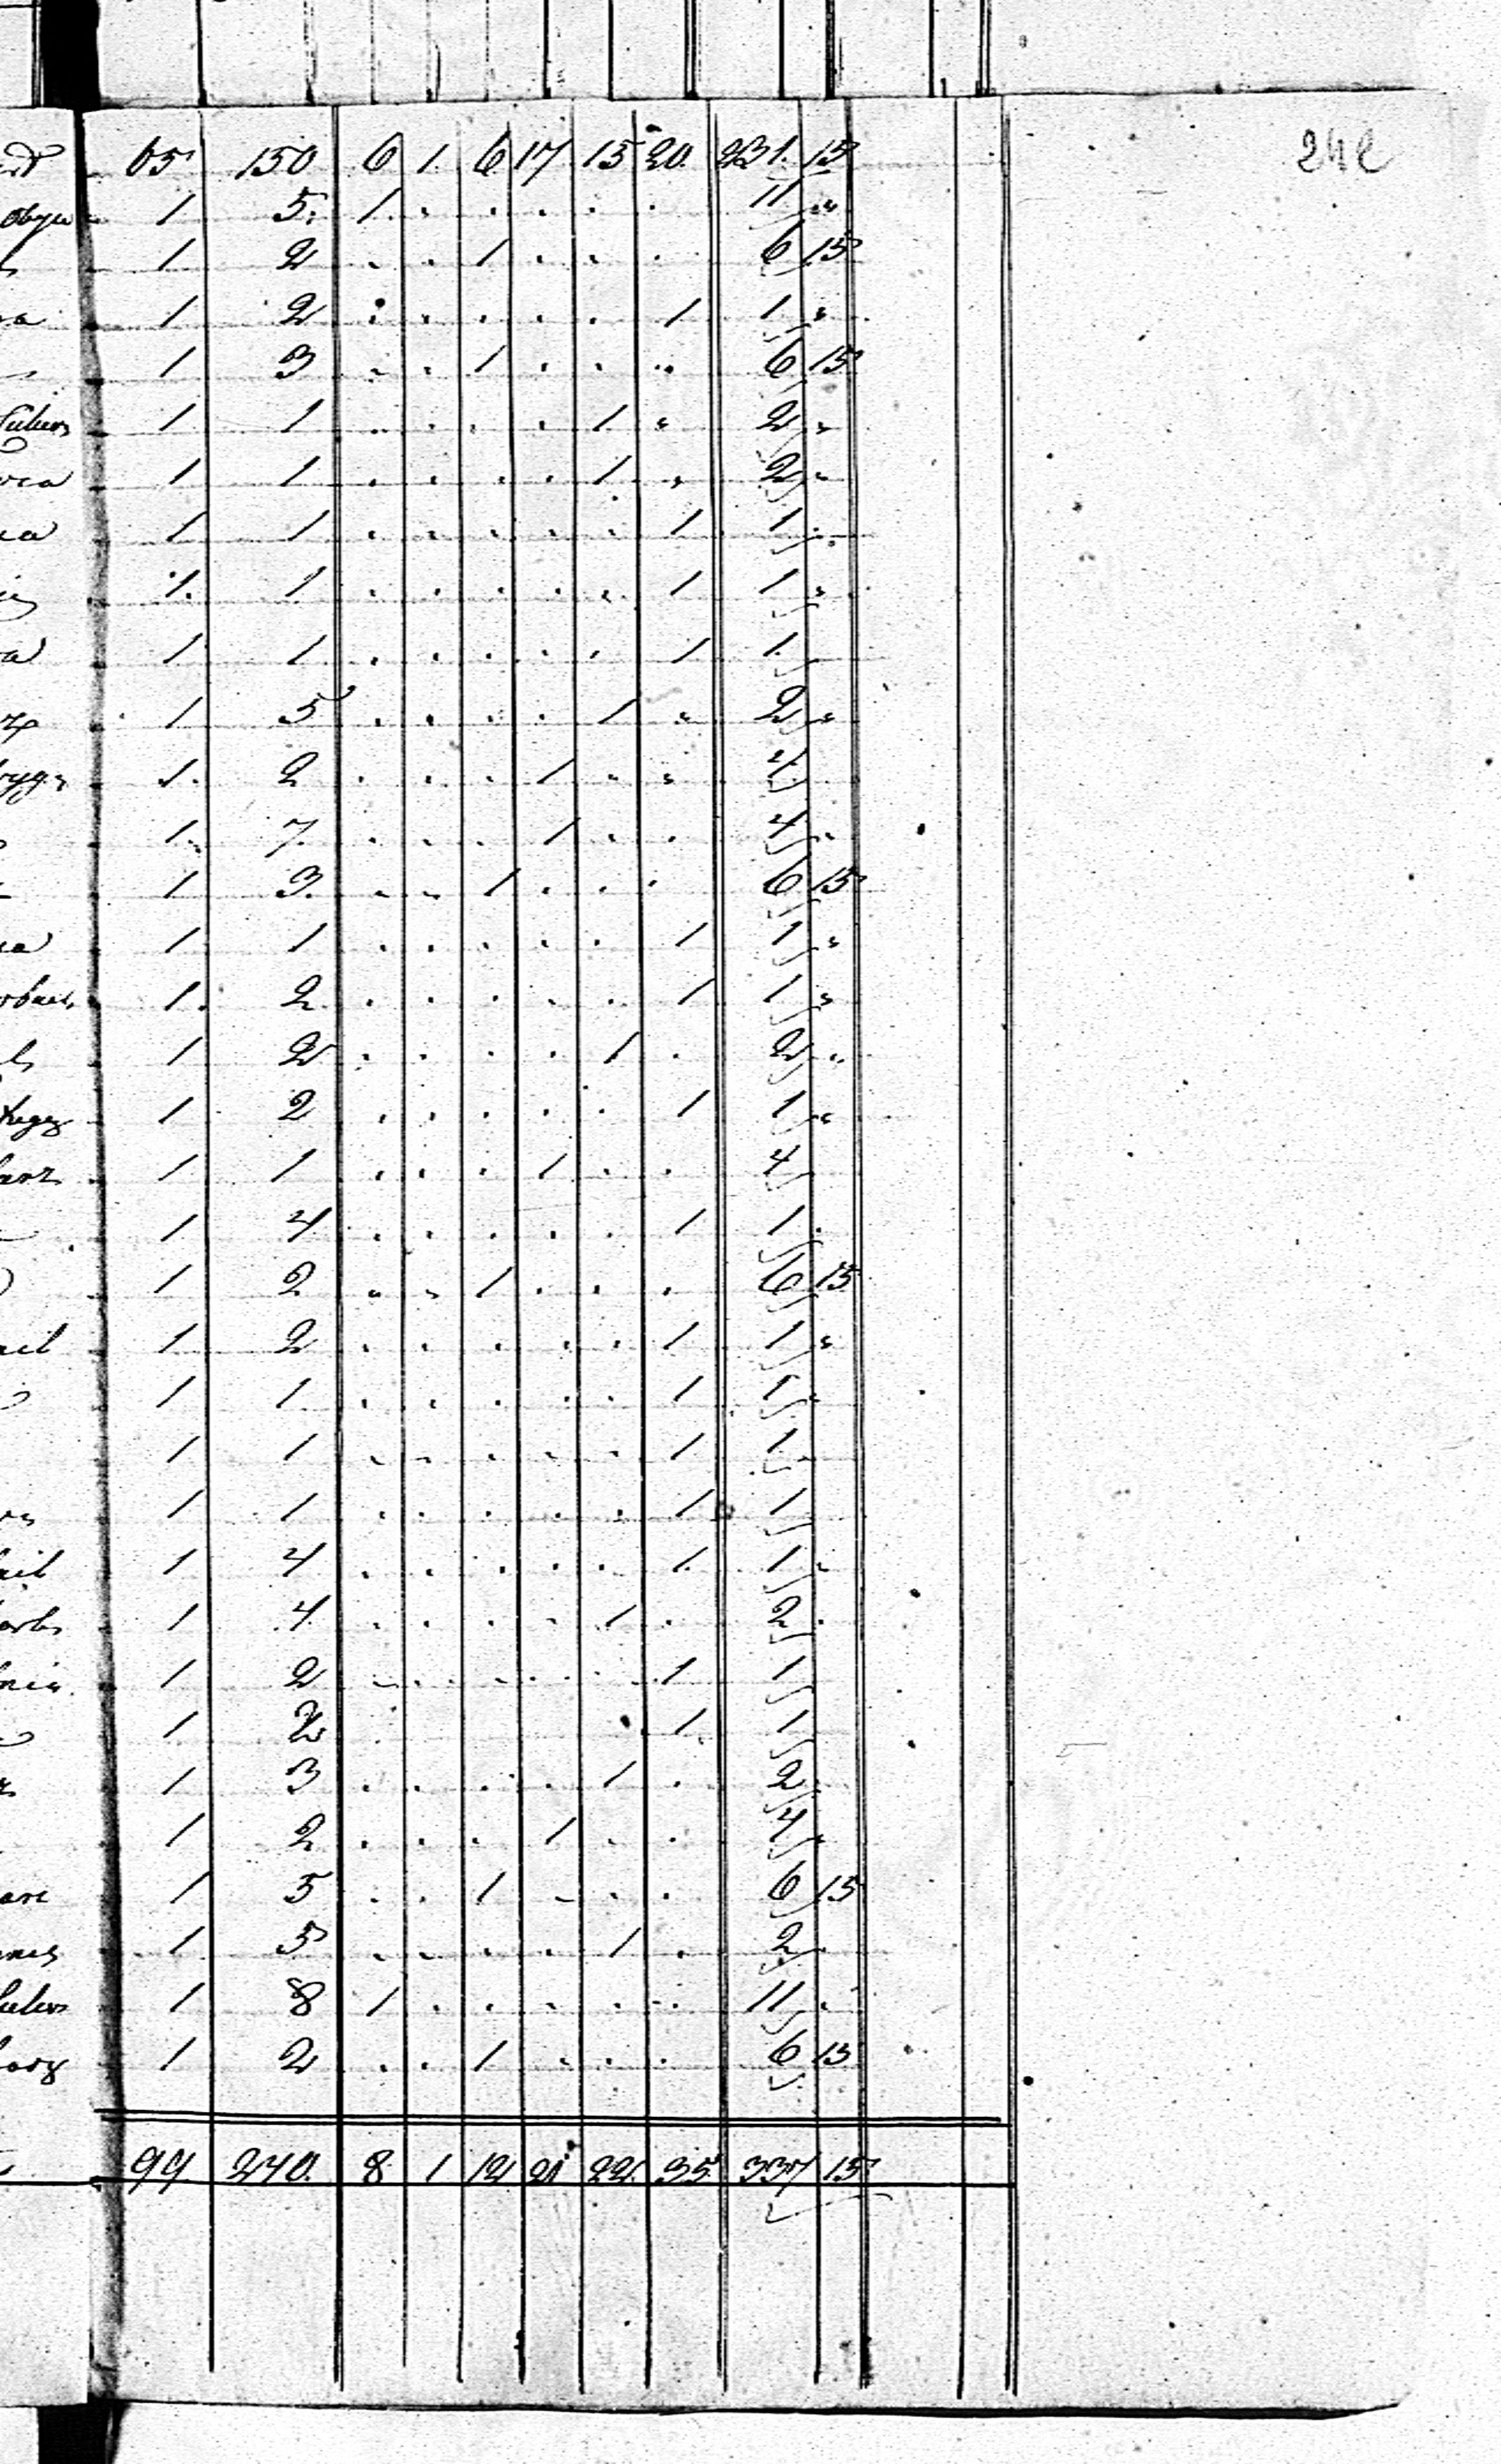 242
65 150 6 1. 6 17 15 20. 231. 15
1 5. 1 . . . . . 11 "
1 2 . . 1 . . . 6 15
1 2 . . . . . 1 1 "
1 3 . . 1 . . . 6 15
1 1 . . . . 1 " 2 "
1 1 . . . . 1 . 2 "
1 1 . . . . . 1 1 .
1. 1 . . . . . 1 1 "
1 1 . . . . . 1 1.
1 5 . . . . 1 " 2 "
1. 2 . . . 1 . " 4
1. 7. . . . 1 . . 4 .
1 3. . . 1 . . . 6 15
1 1 . . . . . 1 1 "
1. 2 . . . . . 1 1 "
1 2 . . . . 1 . 2 "
1 2 . . . . . 1 1 "
1 1 . . . 1 . . 4
1 4 . . . . . 1 1 .
1 2 . . 1 . . . 6 15
1 2 . . . . . 1 1 "
1 1 . . . . . 1 1 .
1 1 . . . . . 1 1
1 1 . . . . . 1 1
1 4 . . . . . 1. 1 .
1 4 . . . . 1 . 2 .
1 2 . . . . . 1 1
1 2 . . 1 1
1 3 . . . . 1 . 2
1 2 . . . 1 . . 4 .
1 5 . . 1 . . . 6 15
1 5 . . . . 1 . 2 .
1 8 1 . . . . . 11 .
1 2 . . 1 . . . 6 15
99 270. 8 1 12 21 22 35. 337 15